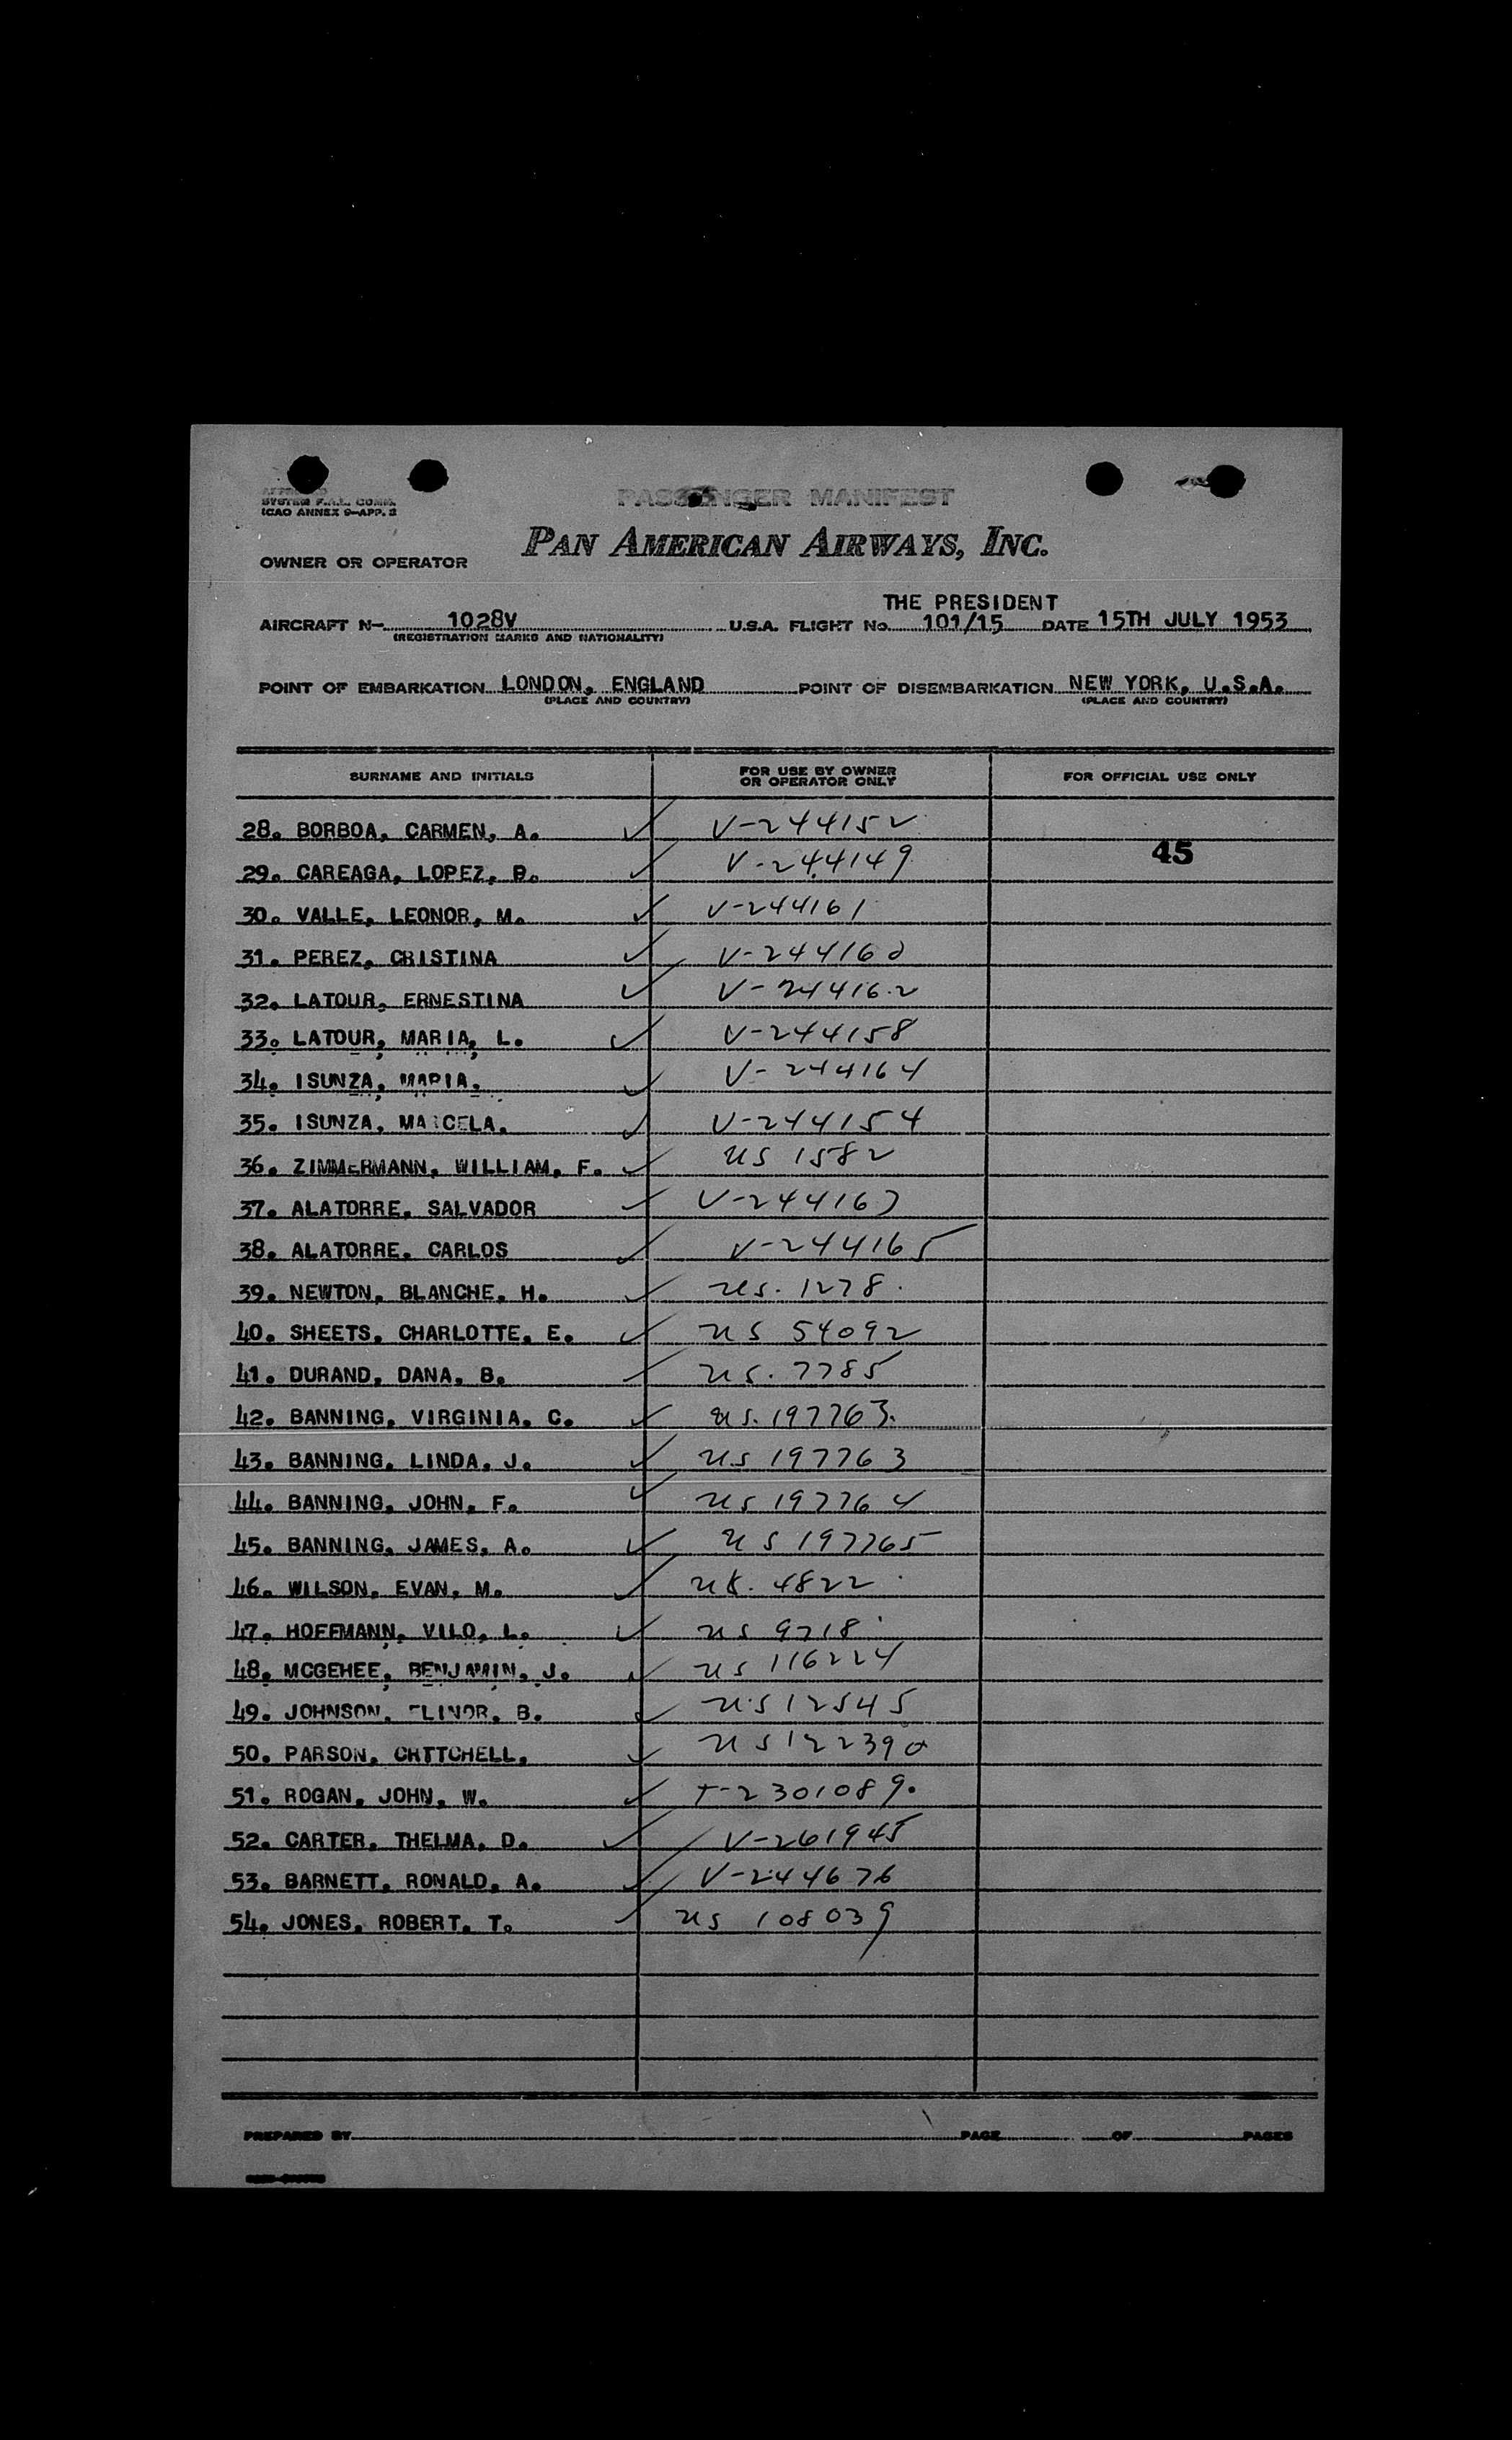 SYSTEM F.A.L. COMM.
ICAO ANNEX 9-APP. 3
PASSENGER MANIFEST
PAN AMERICAN AIRWAYS, INC.
OWNER OR OPERATOR
THE PRESIDENT
AIRCRAFT N- 1028V U.S.A. FLIGHT No. 101/15 DATE 15TH JULY 1953
(REGISTRATION MARKS AND NATIONALITY)
POINT OF EMBARKATION LONDON, ENGLAND POINT OF DISEMBARKATION NEW YORK, U.S.A.
(PLACE AND COUNTRY) (PLACE AND COUNTRY)
SURNAME AND INITIALS FOR USE BY OWNER OR OPERATOR ONLY FOR OFFICIAL USE ONLY
28. BORBOA, CARMEN, A. ✓ V-244152
45
29. CAREAGA, LOPEZ, B. ✓ V-244149
30. VALLE, LEONOR, M. ✓ V-244161
31. PEREZ, CRISTINA ✓ V-244160
32. LATOUR, ERNESTINA ✓ V-244162
33. LATOUR, MARIA, L. ✓ V-244158
34. ISUNZA, MARIA. ✓ V-244164
35. ISUNZA, MARCELA. ✓ V-244154
36. ZIMMERMANN, WILLIAM, F. ✓ US 1582
37. ALATORRE, SALVADOR ✓ V-244167
38. ALATORRE, CARLOS ✓ V-244165
39. NEWTON, BLANCHE, H. ✓ US. 1278.
40. SHEETS, CHARLOTTE, E. ✓ US 54092
41. DURAND, DANA, B. ✓ US. 7785
42. BANNING, VIRGINIA, C. ✓ US. 197763.
43. BANNING, LINDA, J. ✓ US 197763
44. BANNING, JOHN, F. ✓ US 197764
45. BANNING, JAMES, A. ✓ US 197765
46. WILSON, EVAN, M. ✓ 4822
47. HOFFMANN, VILO, L. ✓ US 9718
48. MCGEHEE, BENJAMIN, J. ✓ US 116224
49. JOHNSON, ELINOR, B. ✓ US 12545
50. PARSON, CHTTCHELL, ✓ US 122390
51. ROGAN, JOHN, W. ✓ T-2301089.
52. CARTER, THELMA, D. ✓ V-261945
53. BARNETT, RONALD, A. ✓ V-244676
54. JONES, ROBERT, T. ✓ US 108039
PREPARED BY PAGE OF PAGES